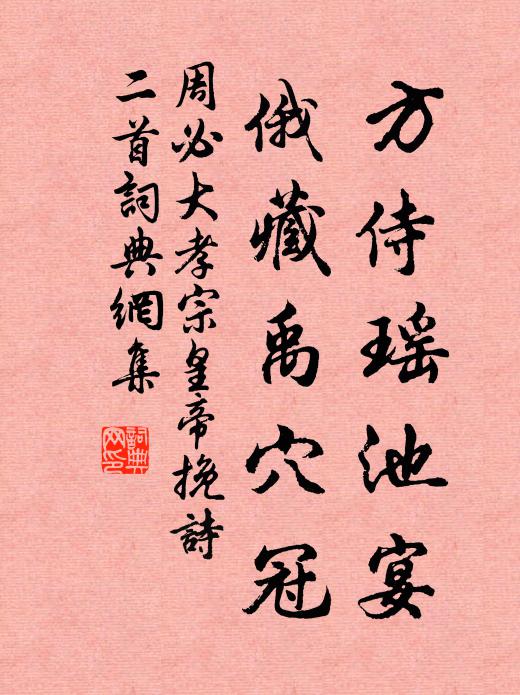 方侍瑶池宴
俄藏禹穴冠
周必大孝宗皇帝挽詩
二首詞典網集
詞典
网印